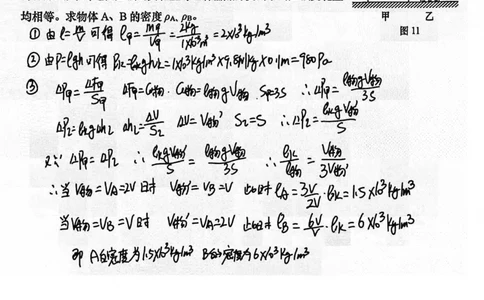 均相等。求物体 A、B 的密度 ρA、ρB。
甲 乙
图 11
① 由ρ=m/V 可得 ρ甲=m甲/V甲=2kg/1×10⁻³m³=2×10³kg/m³
② 由P=ρgh可得 P水=ρ水gh乙=1×10³kg/m³×9.8N/kg×0.1m=980Pa
③ ΔP甲=ΔF甲/S甲 ΔF甲=G物 G物=ρ物gV物 S甲=3S ∴ΔP甲=ρ物gV物/3S
ΔP乙=ρ水gΔh乙 Δh乙=ΔV/S乙 ΔV=V物′ S乙=S ∴ΔP乙=ρ水gV物′/S
又∵ΔP甲=ΔP乙 ∴ρ水gV物′/S=ρ物gV物/3S ∴ρ水/ρ物=V物/3V物′
∴当V物=VA=2V时 V物′=VB=V 此时ρA=3V/2V·ρ水=1.5×10³kg/m³
当V物=VB=V时 V物′=VA=2V 此时ρB=6V/V·ρ水=6×10³kg/m³
即 A的密度为1.5×10³kg/m³ B的密度为6×10³kg/m³